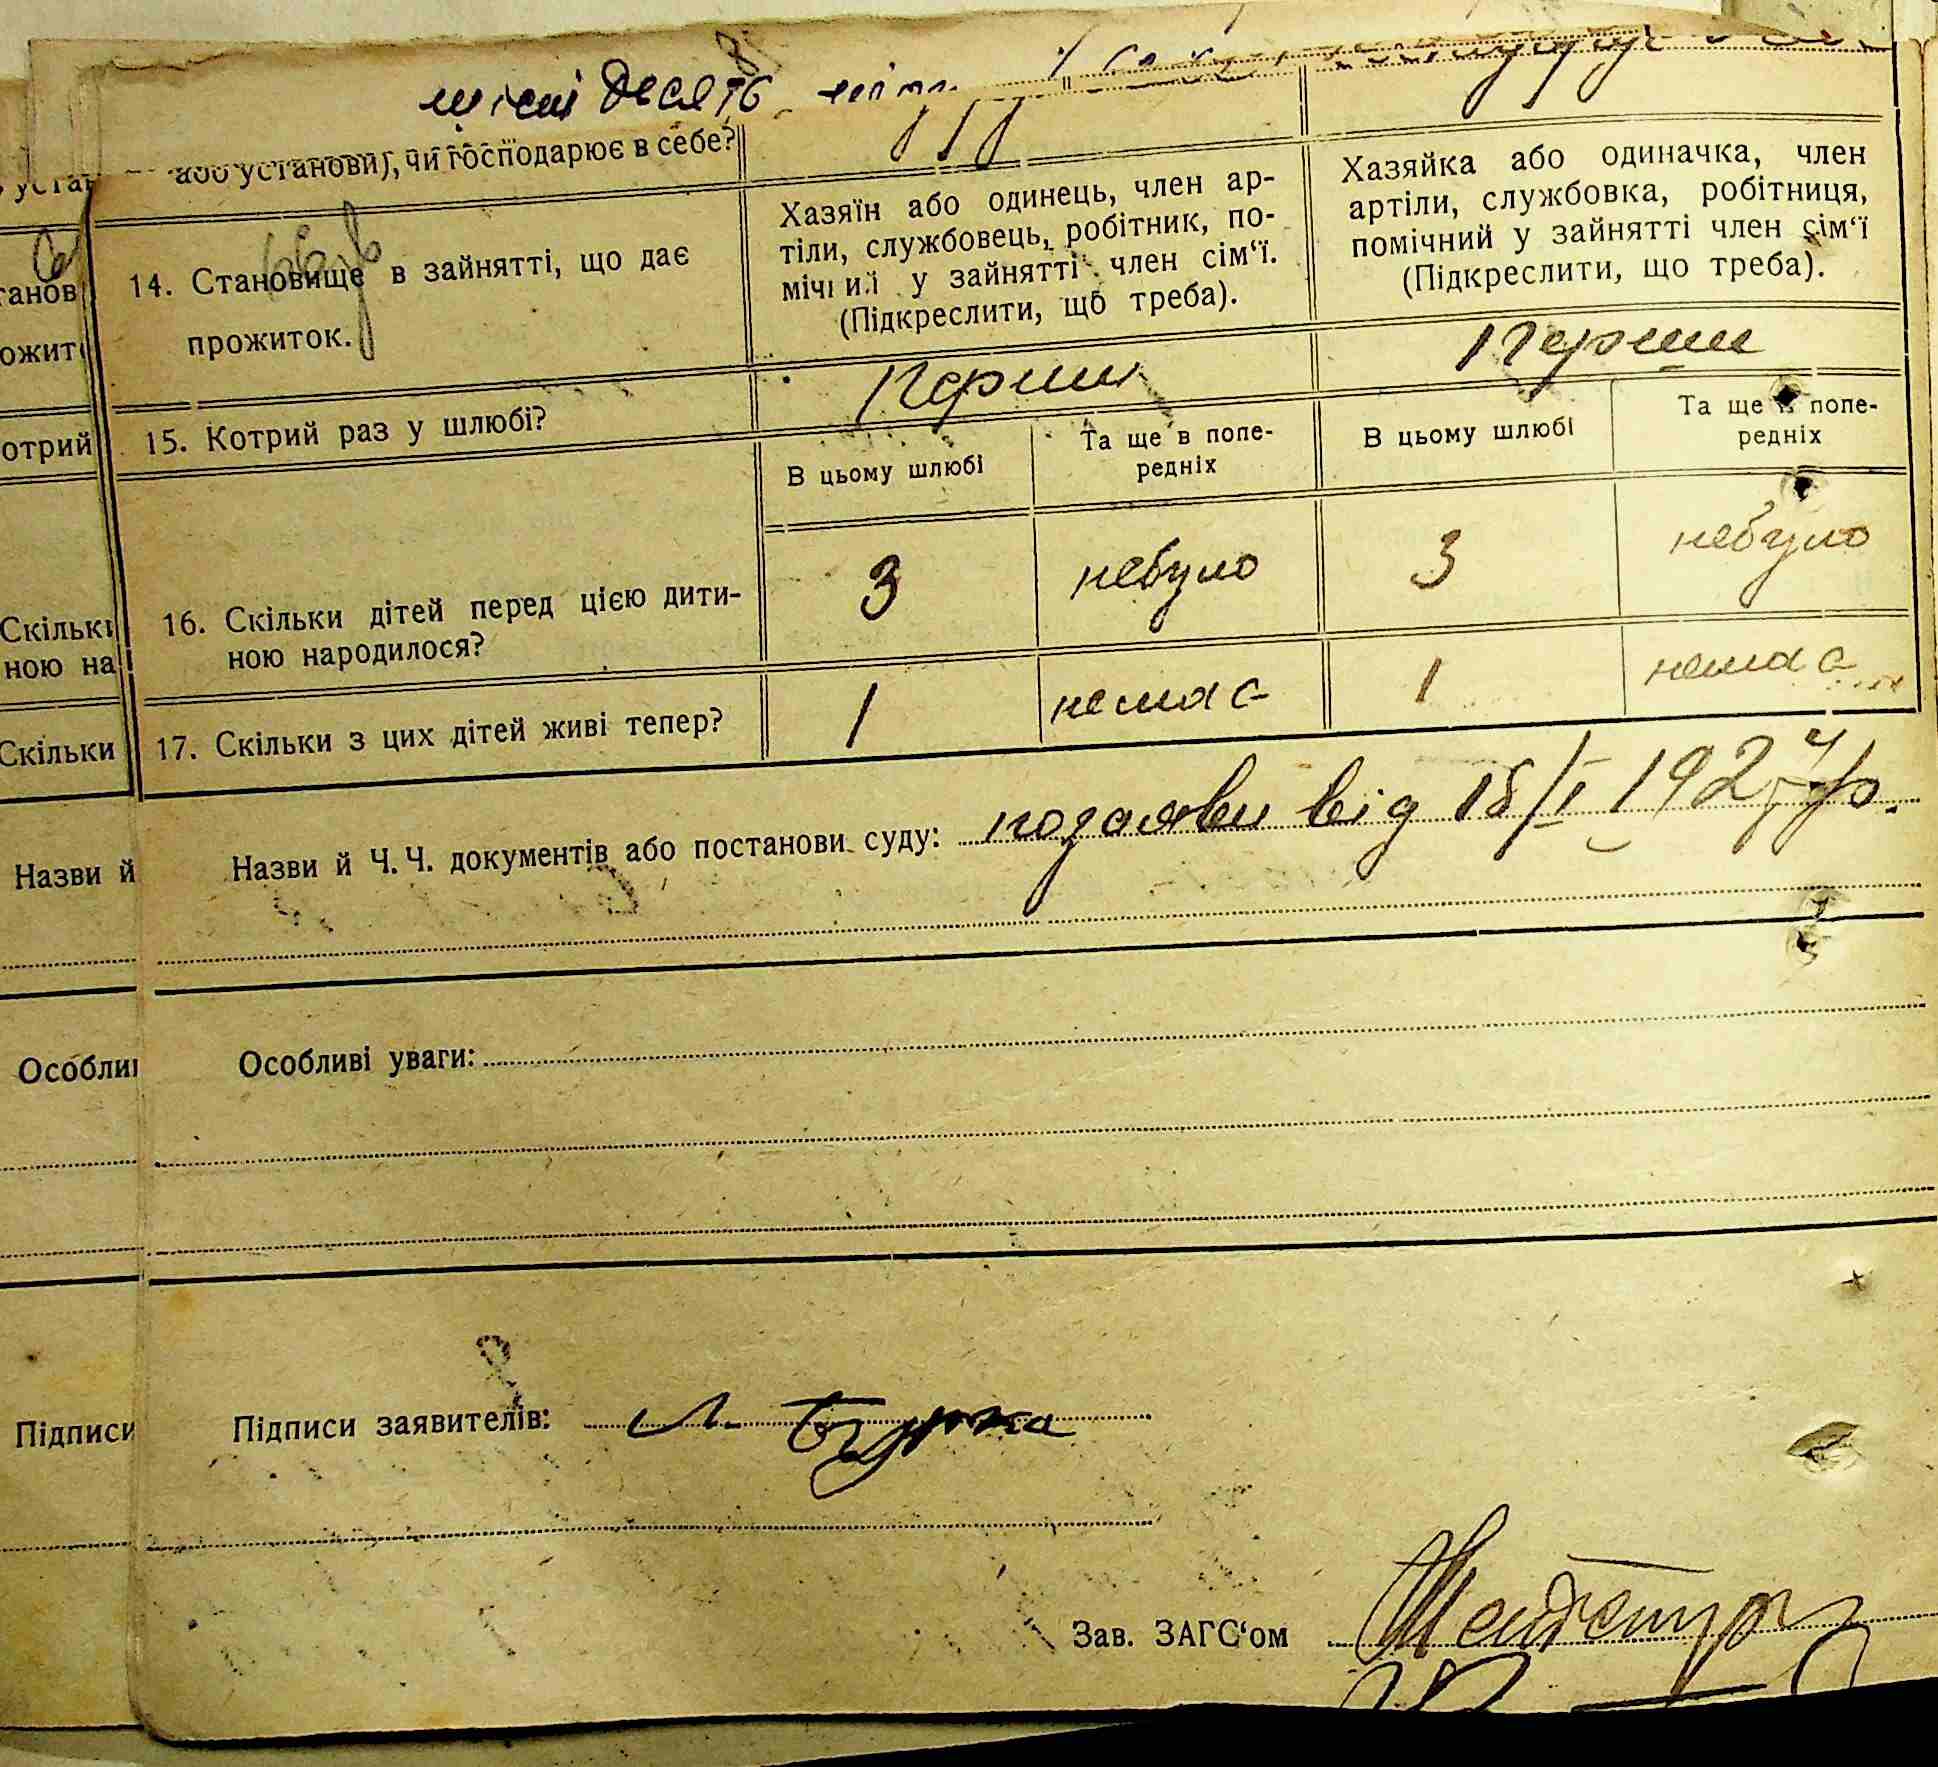 шісті десять
або установи), чи господарює в себе?
14. Становище в зайнятті, що дає
прожиток.
Хазяїн або одинець, член ар-
тіли, службовець, робітник, по-
мічний у зайнятті член сім‘ї.
(Підкреслити, що треба).
Хазяйка або одиначка, член
артіли, службовка, робітниця,
помічний у зайнятті член сім‘ї
(Підкреслити, що треба).
15. Котрий раз у шлюбі?
Перший
Перший
В цьому шлюбі
Та ще в попе-
редніх
В цьому шлюбі
Та ще в попе-
редніх
16. Скільки дітей перед цією дити-
ною народилося?
3
небуло
3
небуло
17. Скільки з цих дітей живі тепер?
1
немає
1
немає
Назви й Ч. Ч. документів або постанови суду: позаяви від 18/I 1927 р.
Особливі уваги:
Підписи заявителів:
Зав. ЗАГС‘ом
станов
ожит
отрий
Скільки
ною на
Скільки
Назви й
Особли
Підписи